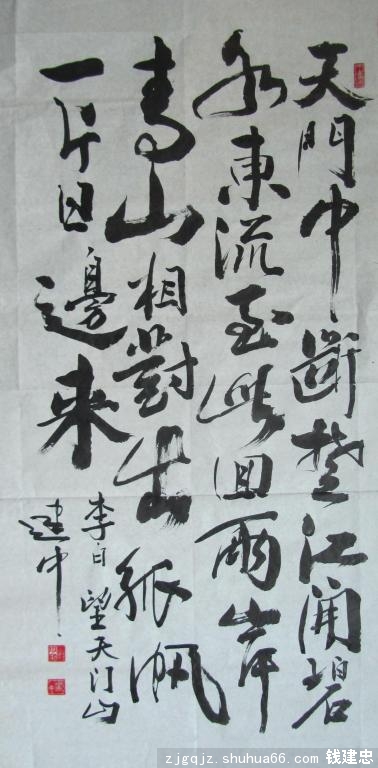 天門中斷楚江開碧
水東流至此回兩岸
青山相對出孤帆
一片日邊來
李白望天门山
建中
zjgqjz.shuhua66.com 钱建忠